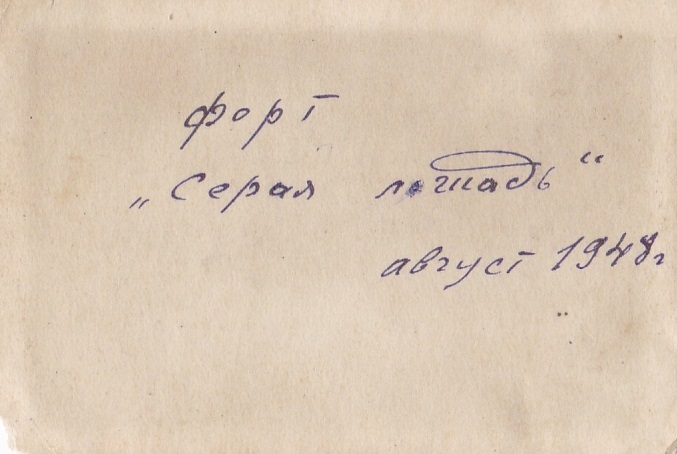 форт
„Серая лошадь“
август 1948г